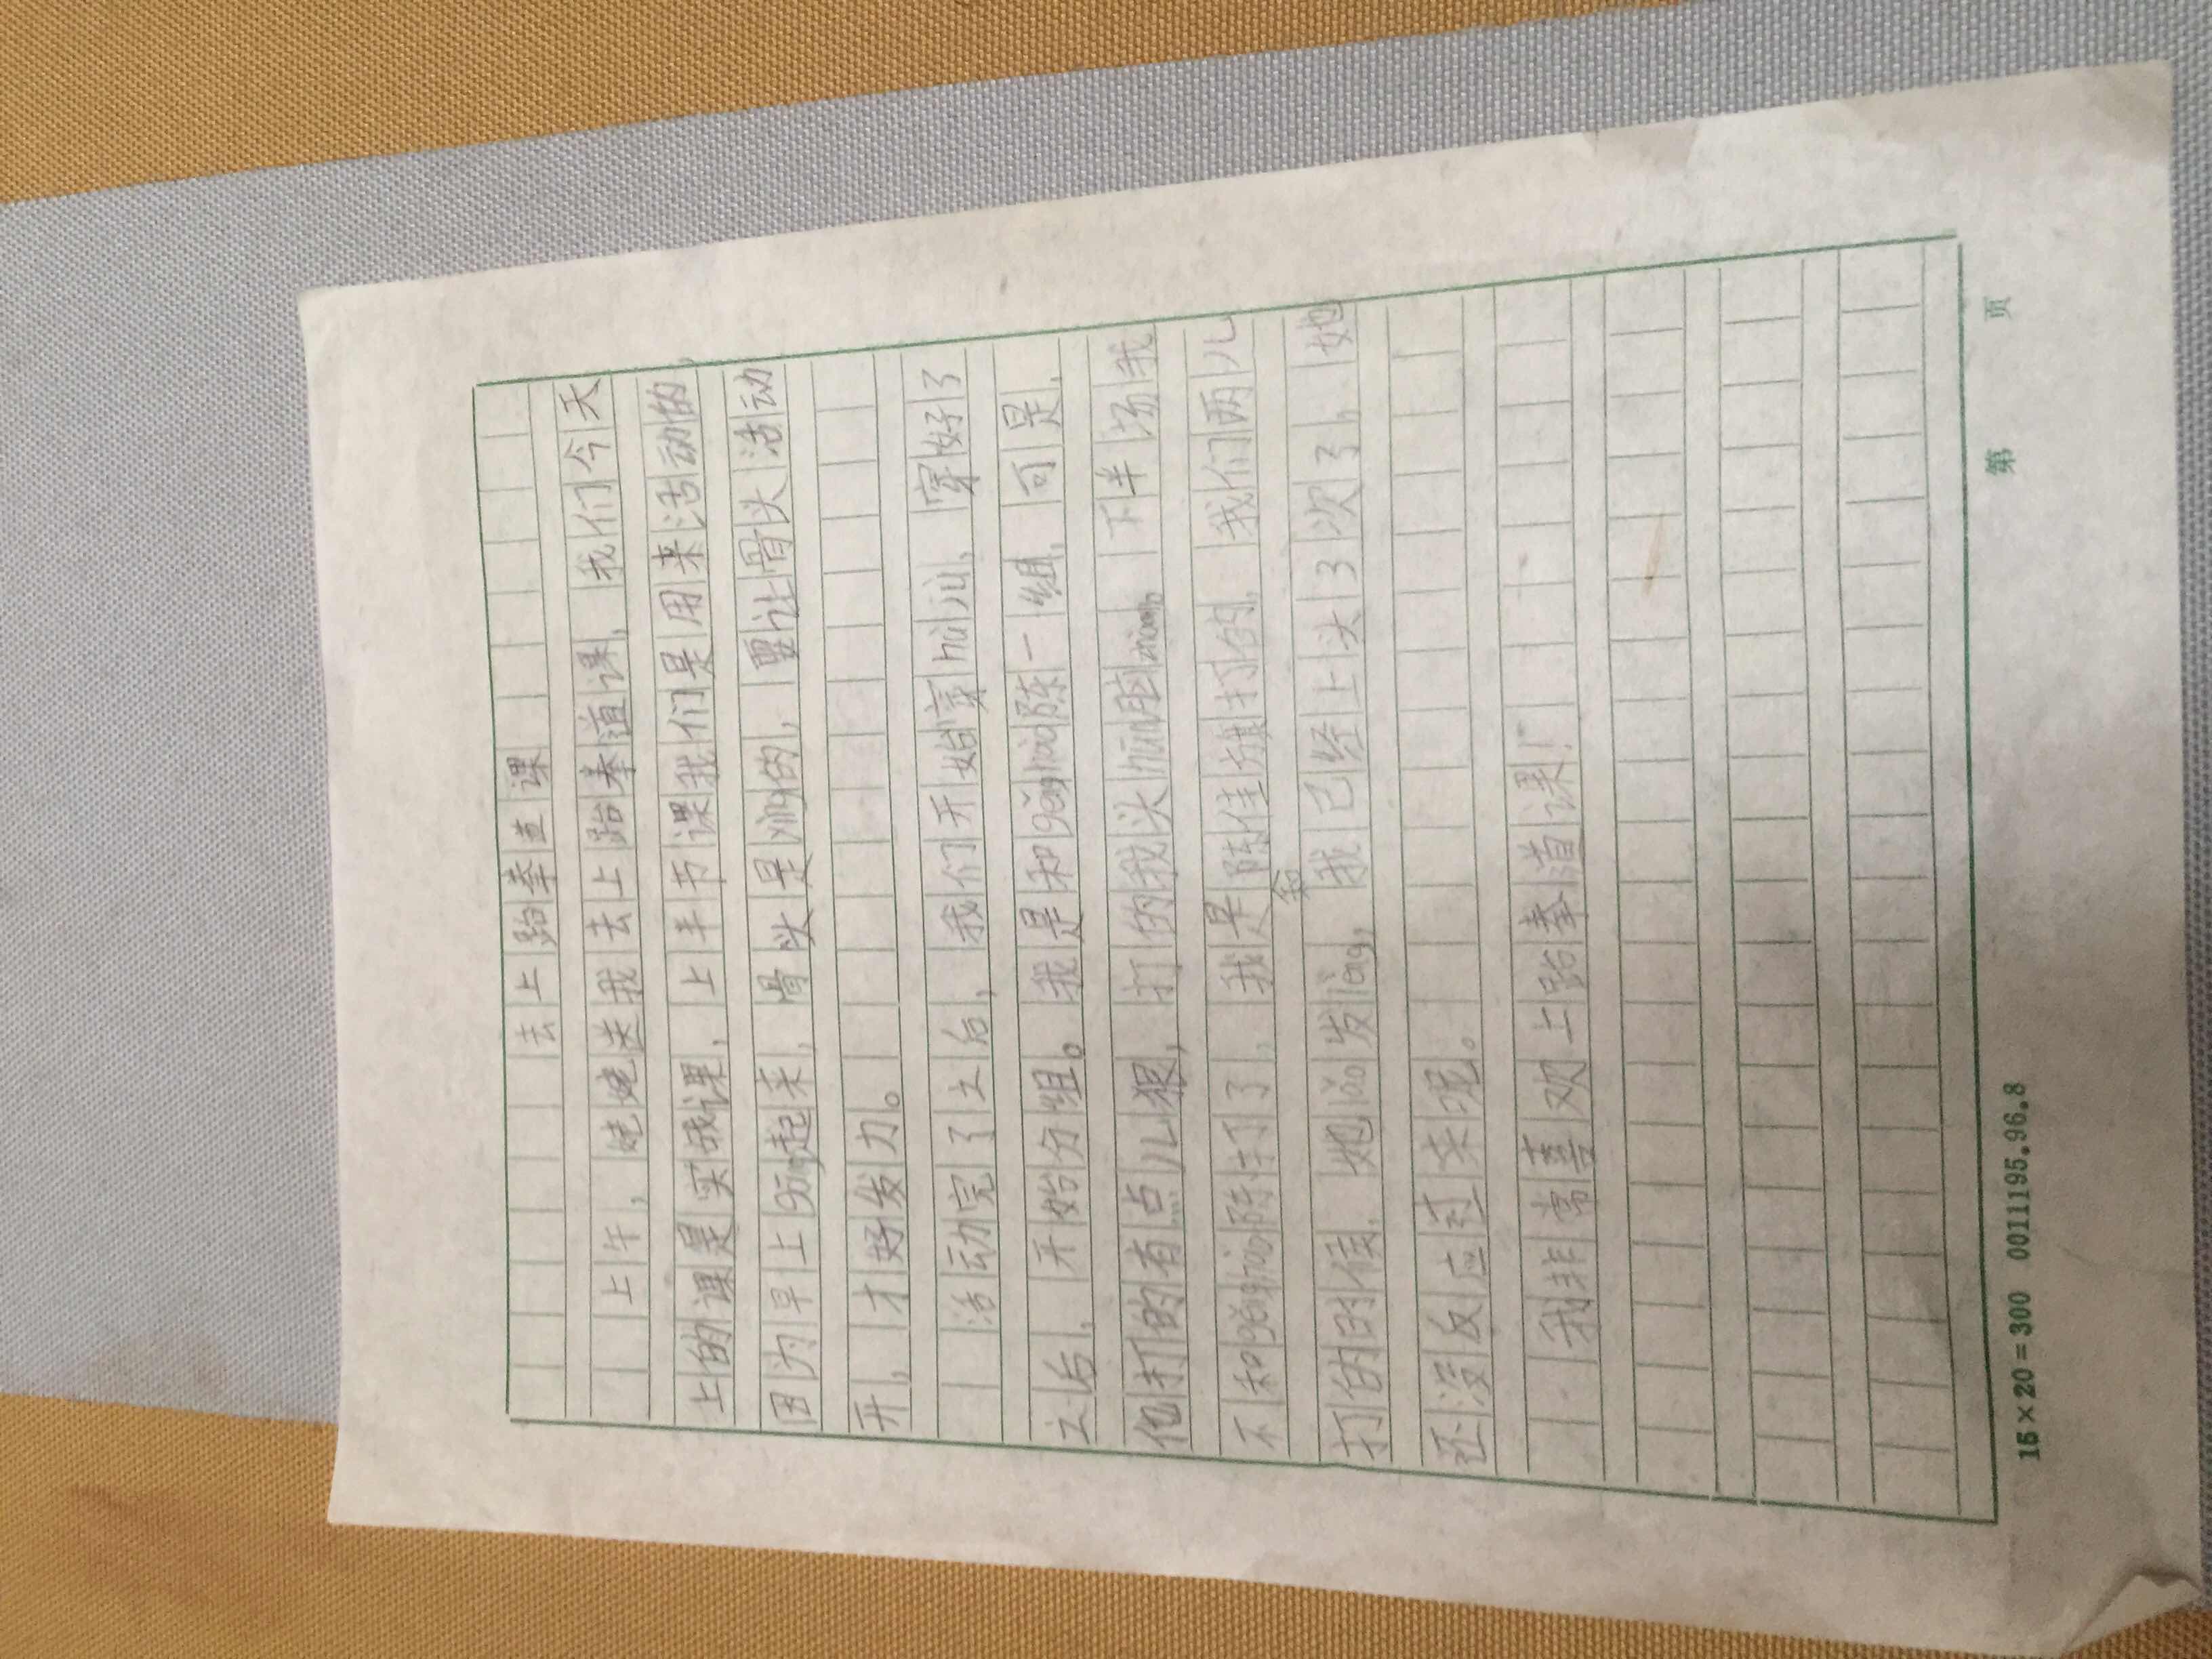 去上跆拳道课
上午，姥姥送我去上跆拳道课，我们今天
上的课是实战课，上半节课我们是用来活动的，
因为早上gāng起来，骨头是yìng的，要让骨头活动
开，才好发力。
活动完了之后，我们开始穿hù jù，穿好了
之后，开始分组。我是和gēng 陈一组，可是，
他打的有点儿狠，打的我头hūn脑 。下半场我
不和gēng 陈打了，我是和陈佳旗打的，我们两儿
打的时候，她 发 ，我已经上头3次了，她
还没反应过来呢。
我非常喜欢上跆拳道课！
15×20=300 0011195.96.8 第 页